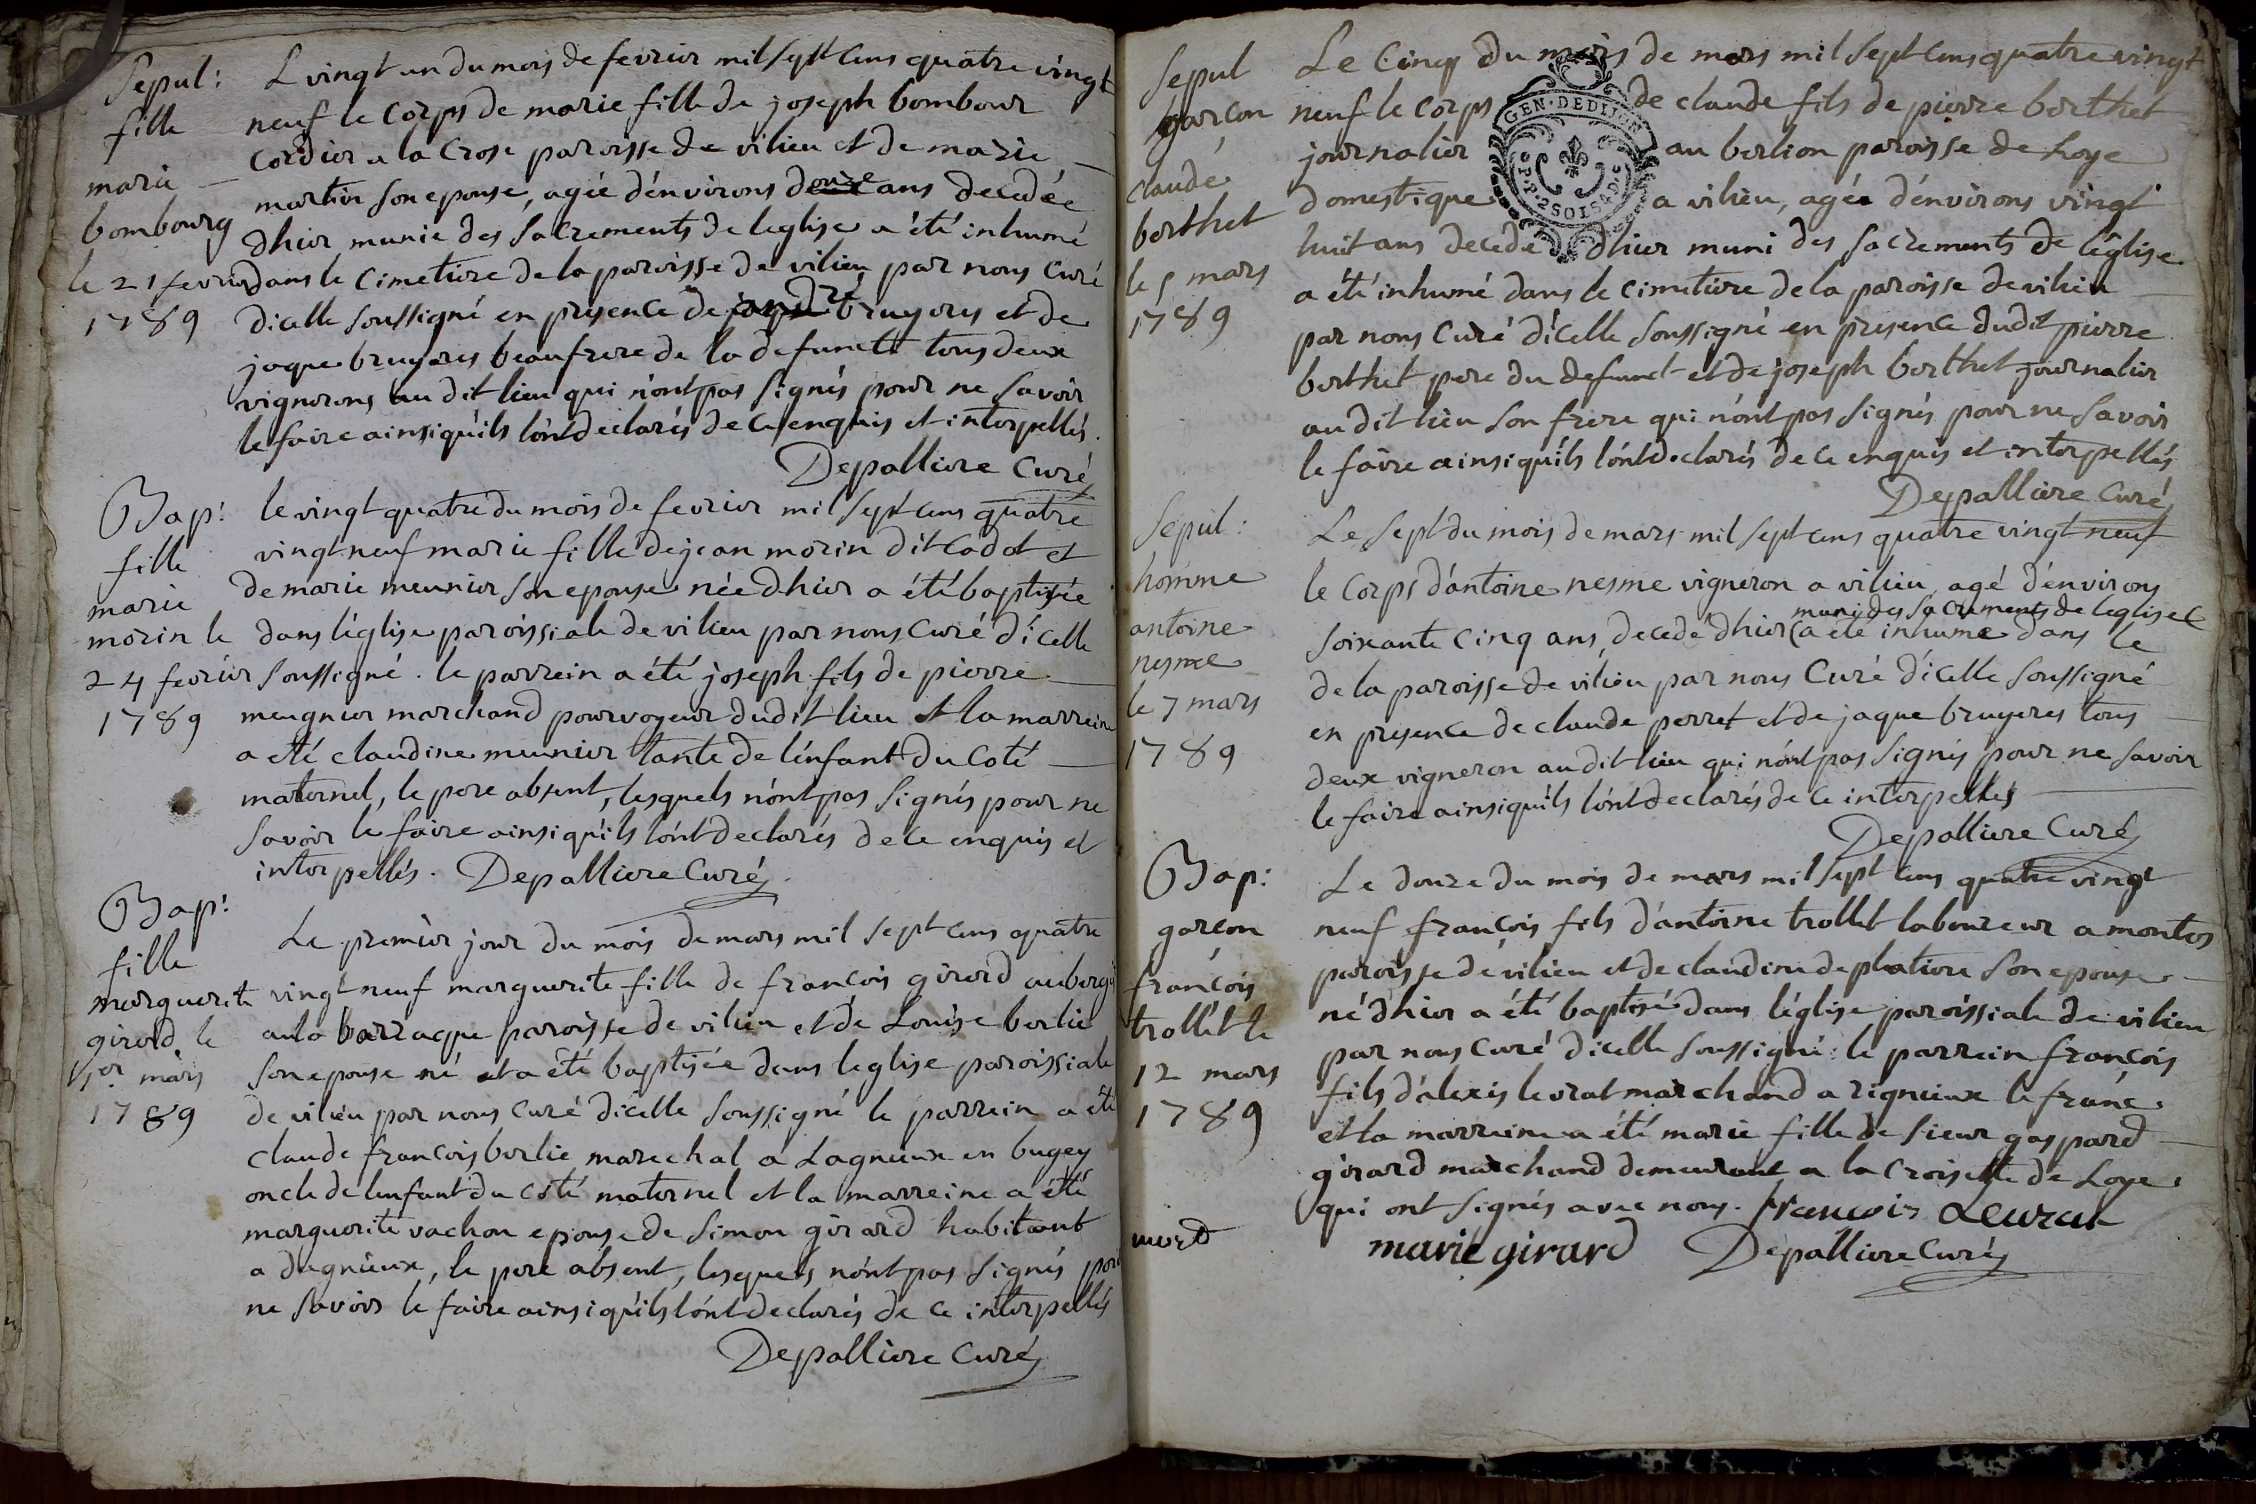 Sepul:
fille
marie
bombourg
le 21 fevrier
1789
L vingt un du mois de fevrier mil sept cens quatre vingt
neuf le corps de marie fille de joseph bombour
cordier a la Crose paroisse de vilieu et de marie
martin son epouse, agée d'environs douze ans decedée
dhier munie des sacrements de leglise a été inhumé
dans le cimetiere de la paroisse de vilieu par nous Curé
dicelle soussigné en presence de bruyeres et de
jaque bruyeres beaufrere de la defuncte tous deux
vignerons au dit lieu qui n'ont pas signés pour ne savoir
le faire ainsi qu'ils l'ont declarés de ce enquis et interpellés.
Depalliere Curé
Bap:
fille
marie
morin le
24 fevrier
1789
le vingt quatre du mois de fevrier mil sept cens quatre
vingt neuf marie fille de jean morin dit cadot et
de marie meunier son epouse née dhier a été baptisée
dans l'église paroissiale de vilieu par nous Curé d'icelle
soussigné. le parrein a été joseph fils de pierre
meugnier marchand pourvoyeur dudit lieu et la marreine
a été claudine munier tante de l'enfant du coté
maternel, le pere absent, lesquels n'ont pas signés pour ne
savoir le faire ainsi qu'ils l'ont declarés de ce enquis et
interpellés. Depalliere Curé
Bap:
fille
marguerite
girard le
1er mars
1789
Le premier jour du mois de mars mil sept cens quatre
vingt neuf marguerite fille de françois girard auberg
a la barraque paroisse de vilieu et de Louise berlie
son epouse né et a été baptisée dans leglise paroissiale
de vilieu par nous curé dicelle soussigné le parrein a été
claude françois berlie marechal a Lagnieux en bugey
oncle de lenfant du coté maternel et la marreine a été
marguerite vachon epouse de simon girard habitant
a dagnieux, le pere absent, lesquels n'ont pas signés pour
ne savoir le faire ainsi qu'ils l'ont declarés de ce interpellés
Depalliere Curé
Sepul
garcon
claude
berthet
le 5 mars
1789
GEN·DEDIJON
P.P. 2SOISD
Le Cinq du mois de mars mil sept cens quatre vingt
neuf le corps de claude fils de pierre berthet
journalier au berlion paroisse de Loye
domestique a vilieu, agée d'environs vingt
huit ans decedé dhier muni des sacrements de l'église
a été inhumé dans le cimetiere de la paroisse de vilieu
par nous Curé d'icelle soussigné en presence dudit pierre
berthet pere du defunct et de joseph berthet journalier
au dit lieu son frere qui n'ont pas signés pour ne savoir
le faire ainsi qu'ils l'ont declarés de ce enquis et interpellés
Depalliere Curé
Sepul:
homme
antoine
nesme
le 7 mars
1789
Le sept du mois de mars mil sept cens quatre vingt neuf
le corps d'antoine nesme vigneron a vilieu agé d'environs
muni des sacrements de leglise
soixante cinq ans, decedé dhier a été inhumé dans le
de la paroisse de vilieu par nous Curé d'icelle soussigné
en presence de claude perret et de jaque bruyeres tous
deux vigneron au dit lieu qui n'ont pas signés pour ne savoir
le faire ainsi qu'ils l'ont declarés de ce interpellés
Depalliere Curé
Bap:
garcon
françois
trollet le
12 mars
1789
mort
Le douze du mois de mars mil sept cens quatre vingt
neuf françois fils d'antoine trollet laboureur a montes
paroisse de vilieu et de claudine deplatiere son epouse
né dhier a été baptisé dans l'église paroissiale de vilieu
par nous curé dicelle soussigné: le parrein françois
fils d'alexis levrat marchand a rignieux le franc
et la marreine a été marie fille de sieur gaspard
girard marchand demeurant a la croisette de Loye
qui ont signés avec nous. francois Levrat
marie girard Depalliere Curé